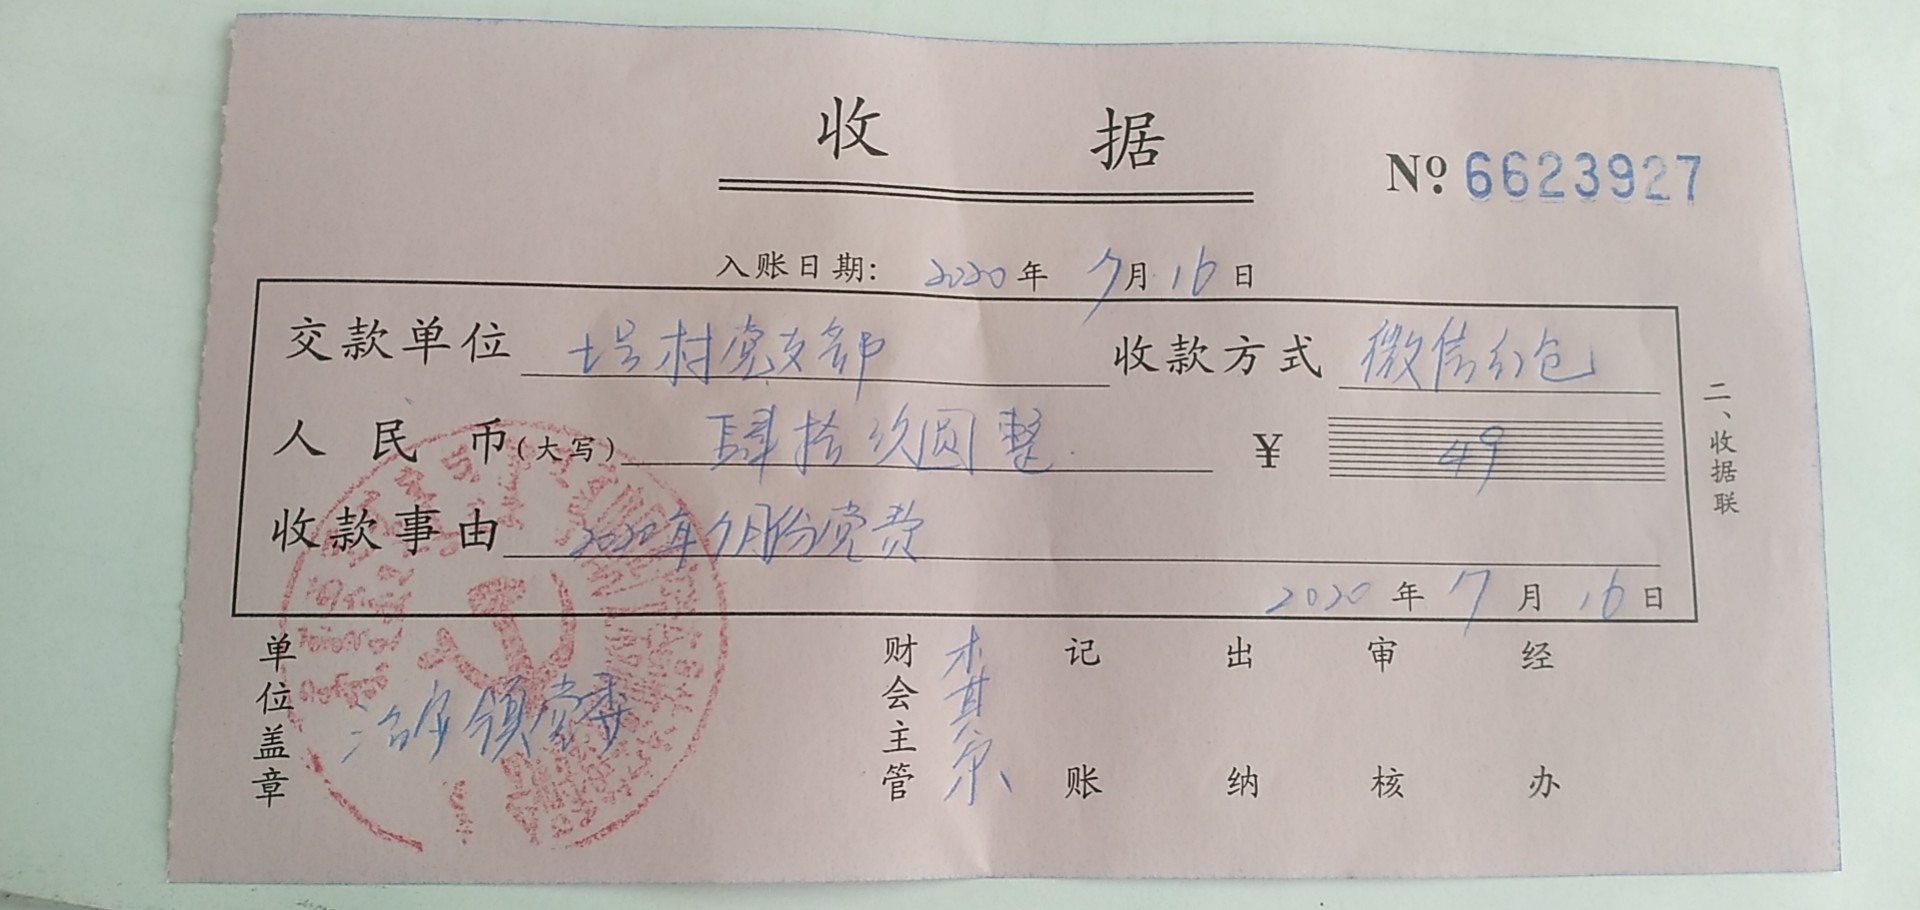 收 据
№ 6623927
入账日期: 2020 年 7 月 16 日
交款单位 村党支部 收款方式 微信红包
人民币(大写) 肆拾玖圆整 ¥ 49
收款事由 2020年7月份党费
2020 年 7 月 16 日
二、收据联
单位盖章 治安镇党委 财会主管 记账 出纳 审核 经办